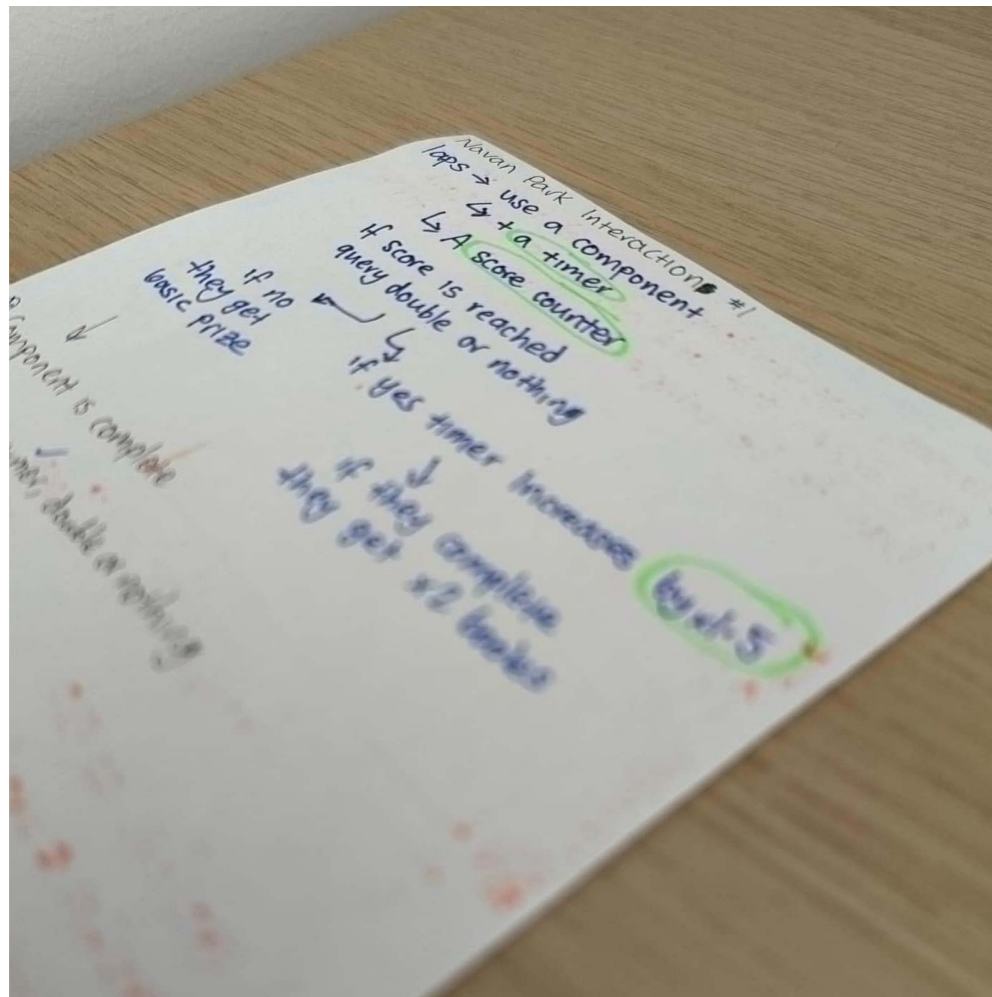 Navan Park Interactions #1
laps → use a component
↳ + a timer
↳ A score counter
If score is reached
query double or nothing
if no
they get
basic prize
if yes timer increases
if they complete
they get x2
Component is complete
double or nothing